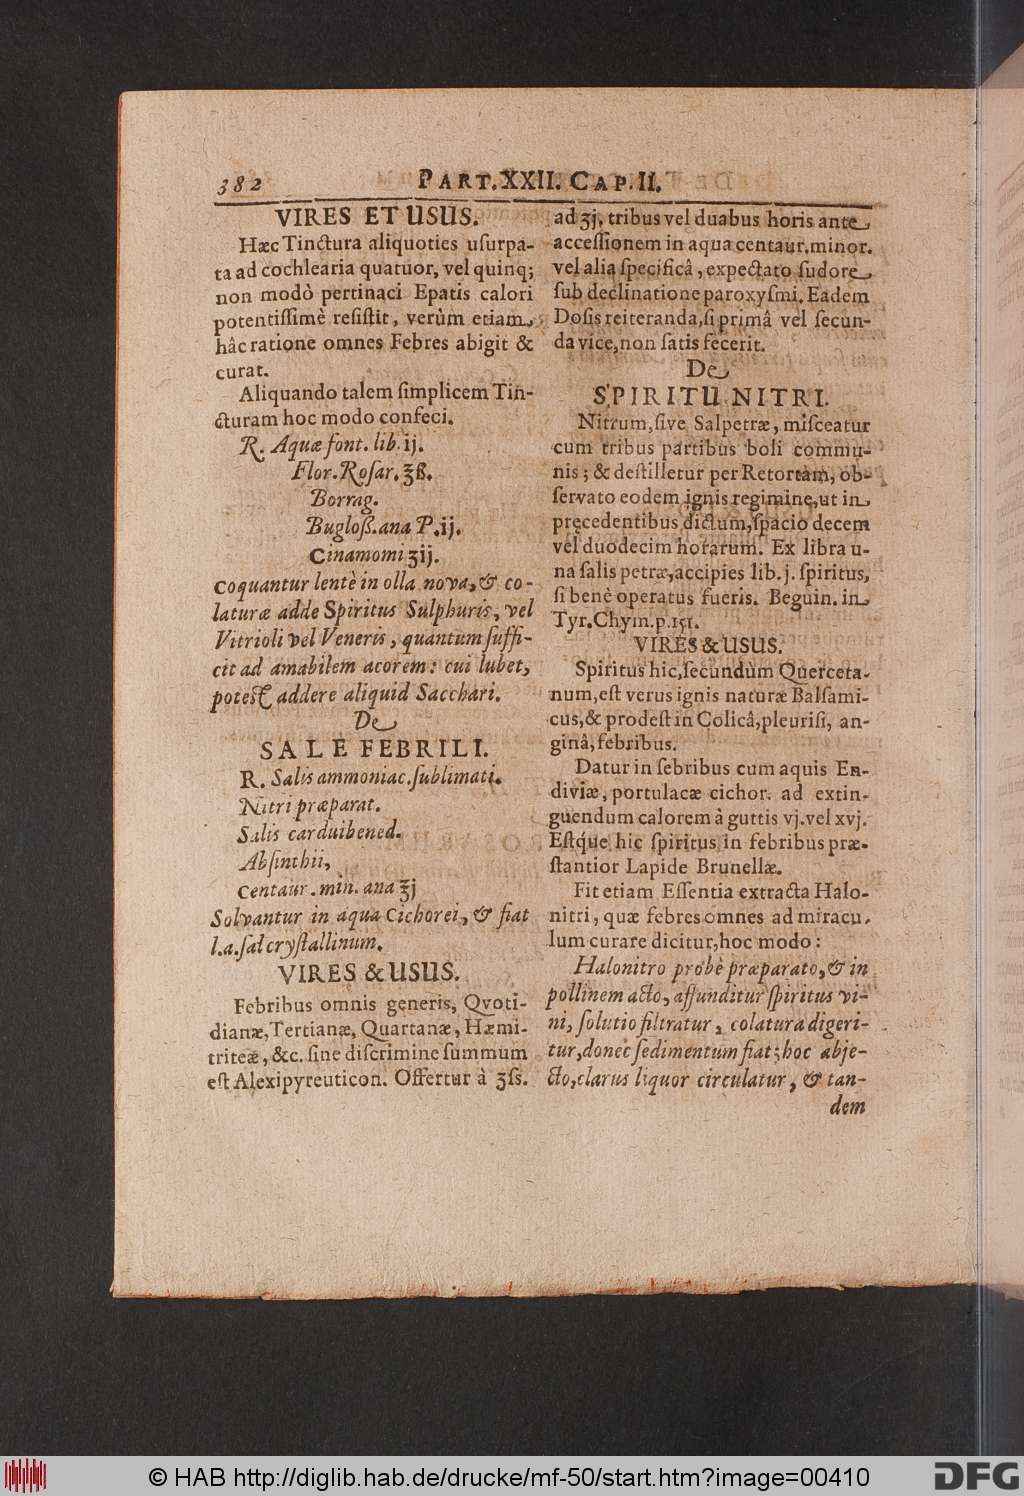 382
PART. XXII. CAP. II.
VIRES ET USUS.
Hæc Tinctura aliquoties uſurpa-
ta ad cochlearia quatuor, vel quinq;
non modò pertinaci Epatis calori
potentiſſimè reſiſtit, verùm etiam
hâc ratione omnes Febres abigit &
curat.
Aliquando talem ſimplicem Tin-
cturam hoc modo confeci.
R. Aquæ font. lib. ij.
Flor. Roſar. ʒß.
Borrag.
Bugloß. ana P. ij.
Cinamomi ʒij.
Coquantur lentè in olla nova, & co-
laturæ adde Spiritus Sulphuris, vel
Vitrioli vel Veneris, quantum ſuffi-
cit ad amabilem acorem: cui lubet,
poteſt addere aliquid Sacchari.
De
SALE FEBRILI.
R. Salis ammoniac. ſublimati.
Nitri præparat.
Salis carduibened.
Abſinthii,
Centaur. min. ana ʒj
Solvantur in aqua Cichorei, & fiat
l. a. ſal cryſtallinum.
VIRES & USUS.
Febribus omnis generis, Qvoti-
dianæ, Tertianæ, Quartanæ, Hæmi-
triteæ, &c. ſine diſcrimine ſummum
eſt Alexipyreuticon. Offertur à ʒſs.
ad ʒj. tribus vel duabus horis ante
acceſſionem in aqua centaur. minor.
vel alia ſpecificâ, expectato ſudore
ſub declinatione paroxyſmi. Eadem
Doſis reiteranda, ſi primâ vel ſecun-
da vice, non ſatis fecerit.
De
SPIRITU NITRI.
Nitrum, ſive Salpetræ, miſceatur
cum tribus partibus boli commu-
nis; & deſtilletur per Retortam, ob-
ſervato eodem ignis regimine, ut in
pręcedentibus dictum, ſpacio decem
vel duodecim horarum. Ex libra u-
na ſalis petræ, accipies lib. j. ſpiritus,
ſi benè operatus fueris. Beguin. in
Tyr. Chym. p. 151.
VIRES & USUS.
Spiritus hic, ſecundùm Querceta-
num, eſt verus ignis naturæ Balſami-
cus, & prodeſt in Colicâ, pleuriſi, an-
ginâ, febribus.
Datur in febribus cum aquis En-
diviæ, portulacæ cichor. ad extin-
guendum calorem à guttis vj. vel xvj.
Eſtq́ue hic ſpiritus in febribus præ-
ſtantior Lapide Brunellæ.
Fit etiam Eſſentia extracta Halo-
nitri, quæ febres omnes ad miracu-
lum curare dicitur, hoc modo:
Halonitro probè præparato, & in
pollinem acto, affunditur ſpiritus vi-
ni, ſolutio filtratur, colatura digeri-
tur, donec ſedimentum fiat; hoc abje-
cto, clarus liquor circulatur, & tan-
dem
© HAB http://diglib.hab.de/drucke/mf-50/start.htm?image=00410
DFG